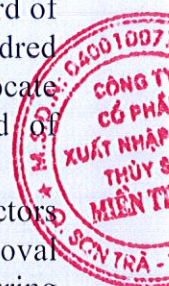 rd of
dred
ocate
d of
ctors
oval
ering
M.S.D.N: 04001007
CÔNG TY
CỔ PHẦ
XUẤT NHẬP
THỦY S
MIỀN T
Q. SƠN TRÀ -